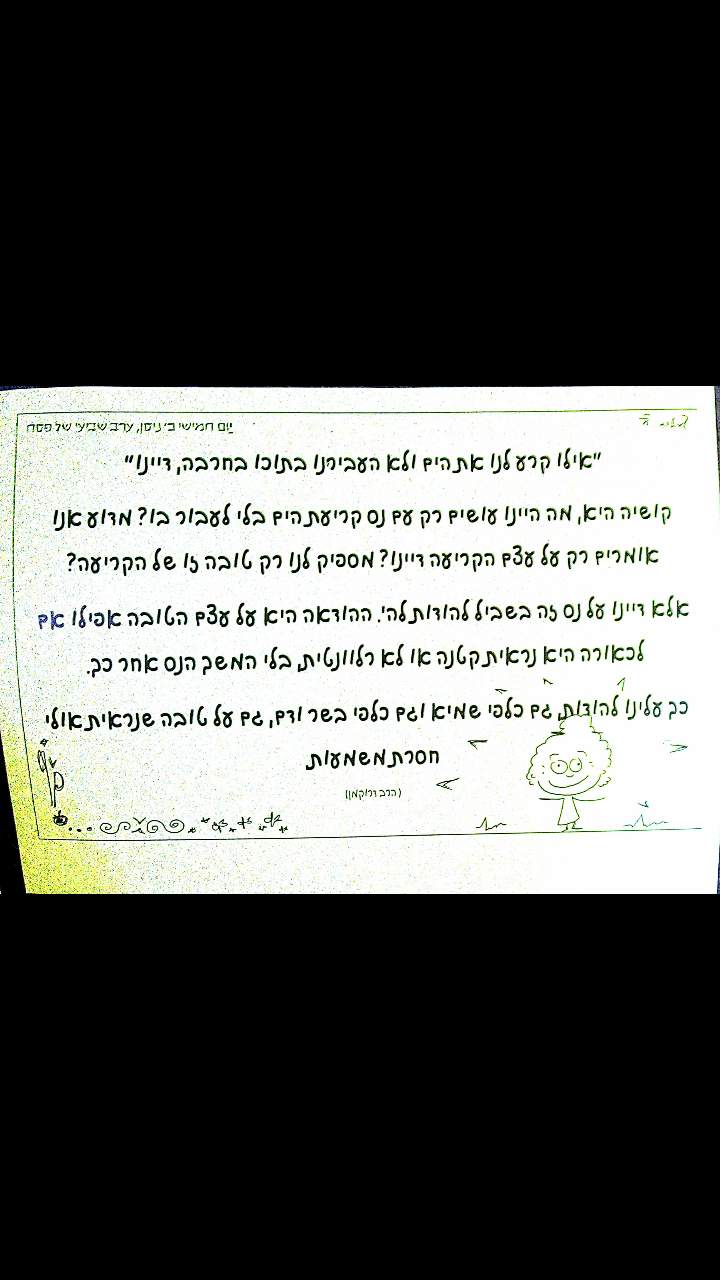 יום חמישי כ' ניסן, ערב שביעי של פסח
"אילו קרע לנו את הים ולא העבירנו בתוכו בחרבה, דיינו"
קושיה היא, מה היינו עושים רק עם נס קריעת הים בלי לעבור בו? מדוע אנו
אומרים רק על עצם הקריעה דיינו? מספיק לנו רק טובה זו של הקריעה?
אלא דיינו על נס זה בשביל להודות לה'. ההודאה היא על עצם הטובה אפילו אם
לכאורה היא נראית קטנה או לא רלוונטית, בלי המשך הנס אחר כך.
כך עלינו להודות, גם כלפי שמיא וגם כלפי בשר ודם, גם על טובה שנראית אולי
חסרת משמעות